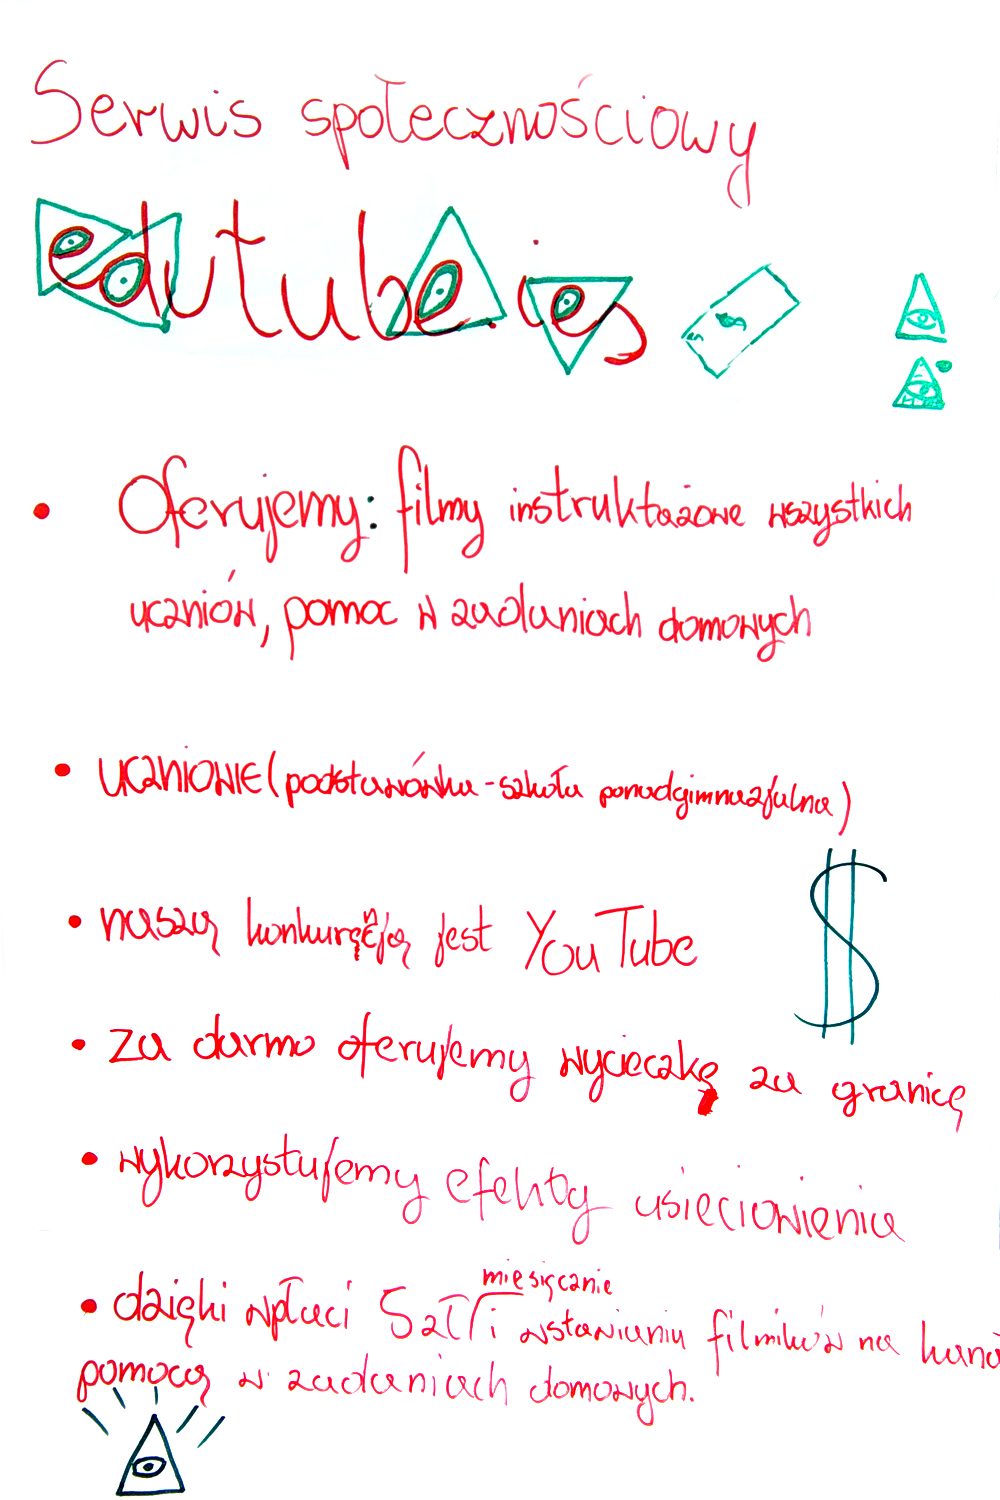 Serwis społecznościowy
edutube.ies
• Oferujemy: filmy instruktażowe wszystkich
uczniów, pomoc w zadaniach domowych
• UCZNIOWIE (podstawówka - szkoła ponadgimnazjalna)
• naszą konkurencją jest YouTube
• za darmo oferujemy wycieczkę za granicę
• wykorzystujemy efekty usieciowienia
miesięcznie
• dzięki wpłaci 5zł i wstawianiu filmików na
pomocą w zadaniach domowych.
$